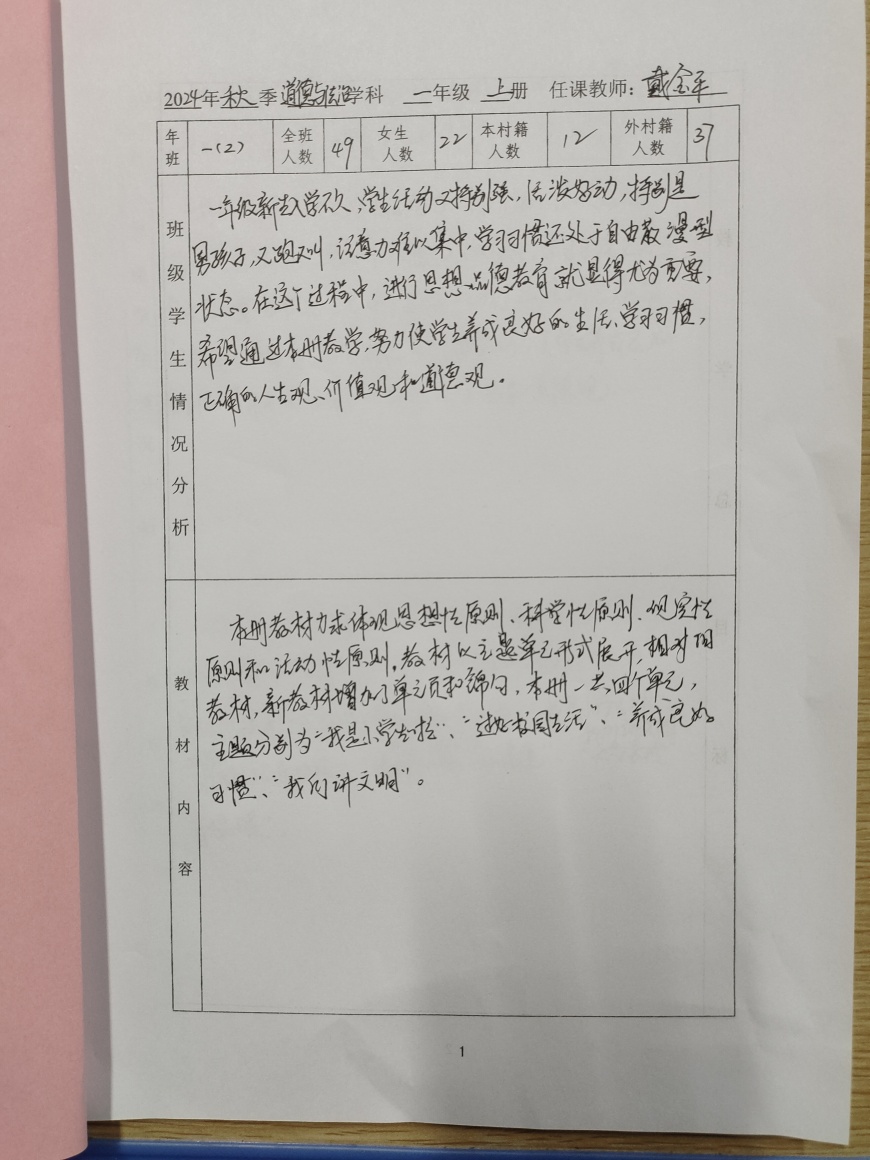 2024年秋季道德与法治学科 一年级 上册 任课教师：戴金平
年班 一(2) 全班人数 49 女生人数 22 本村籍人数 12 外村籍人数 37
班级学生情况分析
一年级新生入学不久，学生活动又特别强，活泼好动，特别是
男孩子，又跑又叫，注意力难以集中，学习习惯还处于自由散漫型
状态。在这个过程中，进行思想品德教育就显得尤为重要，
希望通过本册教学，努力使学生养成良好的生活、学习习惯，
正确的人生观、价值观和道德观。
教材内容
本册教材力求体现思想性原则、科学性原则、现实性
原则和活动性原则。教材以主题单元形式展开，相对旧
教材，新教材增加了单元页和锦句，本册一共四个单元，
主题分别为“我是小学生啦”、“过好校园生活”、“养成良好
习惯”、“我们讲文明”。
1